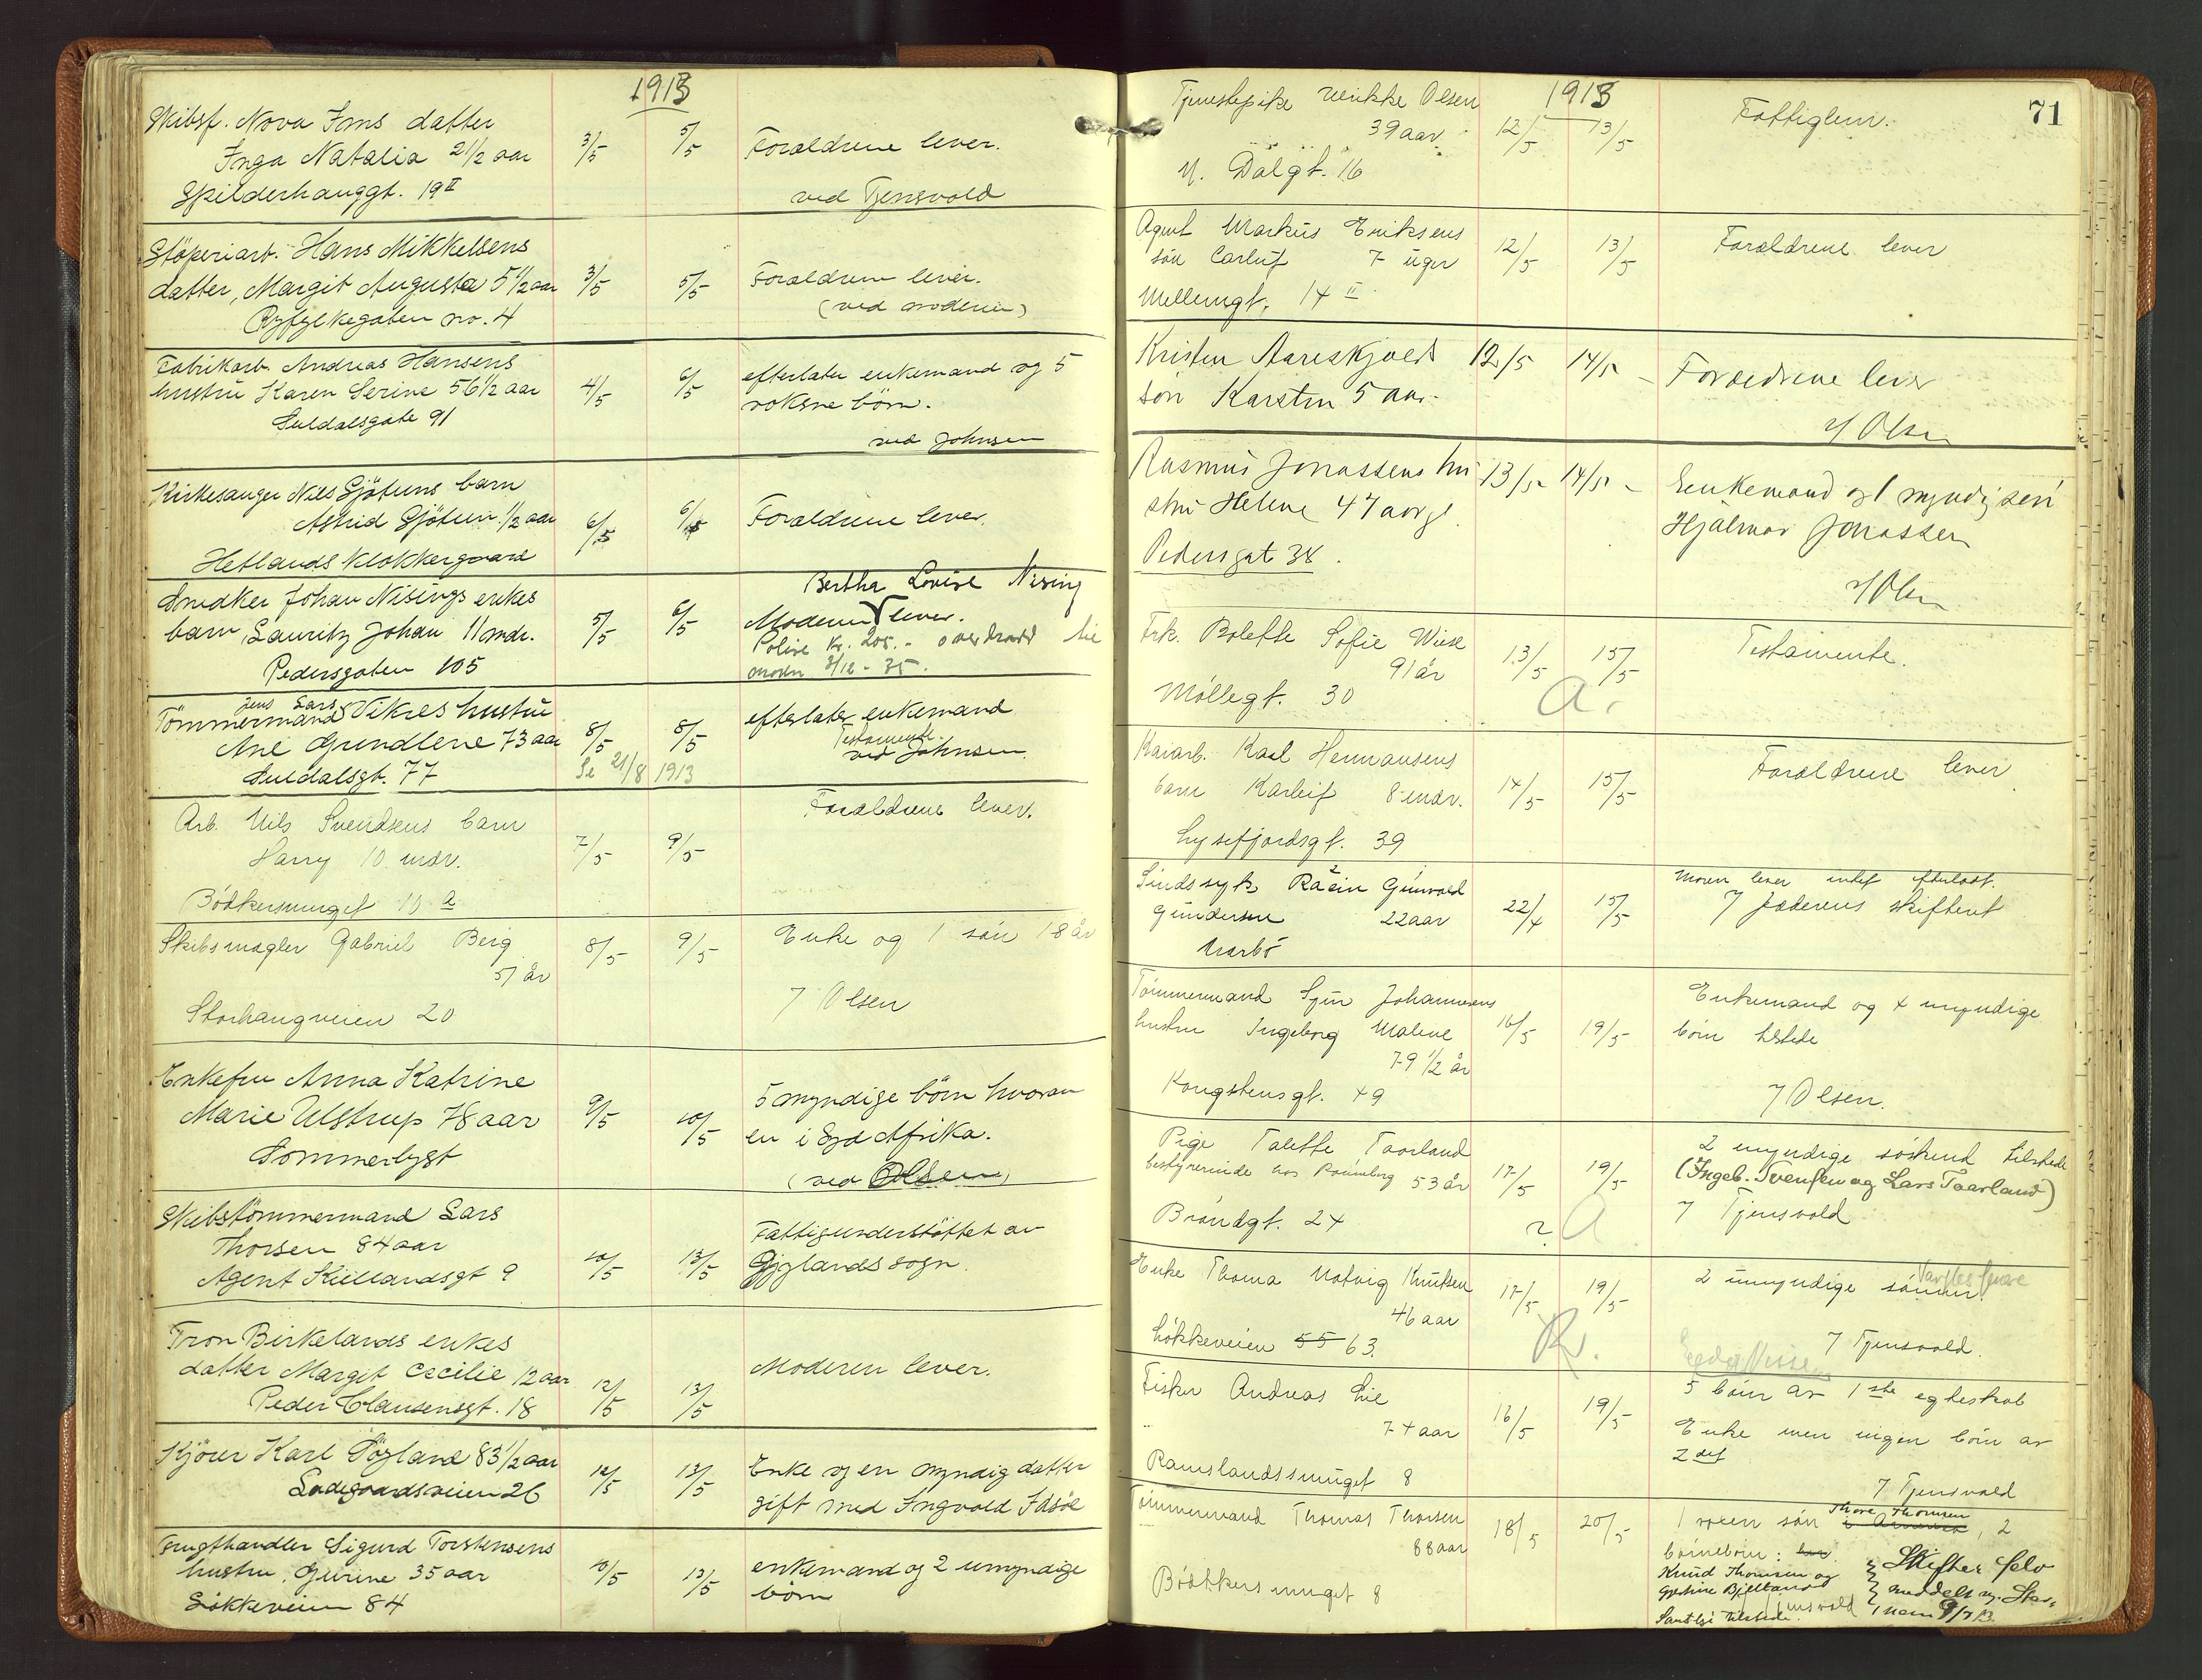 1913
Skibsf. Nova Ims datter
Inga Natalia 2 1/2 aar 3/5 5/5 Forældrene lever.
Spilderhauggt. 19 II ved Tjensvold
Støperiarb. Hans Mikkelsens
datter, Margit Augusta 5 1/2 aar 3/5 5/5 Forældrene lever.
Ryfylkegaten no. 4 (ved moderen)
Fabrikarb. Andreas Hansens
hustru Karen Serine 56 1/2 aar 4/5 6/5 efterlater enkemand og 5
voksne børn.
Suldalsgate 91
ved Johnsen
Kirkesanger Nils Gjøtuns barn
Astrid Gjøtun 1/2 aar 6/5 6/5 Forældrene lever.
Hetlands Klokkergaard
Bertha Lovise Nising
Snedker Johan Nisings enkes
barn, Lauritz Johan 11 mdr. 5/5 6/5 Moderen lever.
Polise Kr. 205.- overdradd til
Pedersgaten 105 moren 3/12 - 35.
Jens Lars
Tømmermand Vikses hustru efterlater enkemand
Ane Gundlene 73 aar 8/5 8/5 Testamente.
ved Johnsen.
Suldalsgt. 77 Se 21/8 1913
Arb. Nils Svendsens barn Forældrene lever.
Harry 10 mdr. 7/5 9/5
Bødkersmuget 10 a
Skibsmægler Gabriel Berg 8/5 9/5 Enke og 1 søn 18 år
51 år
Storhaugveien 20 / Olsen
Enkefru Anna Katrine
Marie Ulstrup 78 aar 9/5 10/5 5 myndige børn hvorav
en i Syd Afrika.
Sommerlyst (ved Olsen)
Skibstømmermand Lars
Thorsen 84 aar 10/5 13/5 Fattigunderstøttet av
Agent Kiellandsgt 9 Gjylands sogn.
Tron Birkelands enkes
datter Margit Cecilie 12 aar 12/5 13/5 Moderen lever.
Peder Clausensgt. 18
Kjører Karl Tøgland 83 1/2 aar 12/5 13/5 Enke og en myndig datter
Ladegaardsveien 26 gift med Ingvald Idsøe
Frugthandler Sigurd Torstensens
hustru, Gurine 35 aar 10/5 13/5 enkemand og 2 umyndige
Løkkeveien 84 børn
71
1913
Tjenestepike Ulrikke Olsen Fattiglem.
39 aar 12/5 13/5
N. Dalgt. 16
Agent Markus Eriksens
søn Carluf 7 uger 12/5 13/5 Forældrene lever
Mellemgt. 14 II
Kristen Aareskjolds 12/5 14/5 - Forældrene lever
søn Karsten 5 aar.
v/ Olsen
Rasmus Jonassens hu 13/5 14/5 - Enkemand og 1 myndig søn
stru Helene 47 aar gl. Hjalmar Jonassen
Pedersgat 38.
v/ Olsen
Frk. Bolette Sofie Wiese 13/5 15/5 Testamente.
91 år
Møllegt. 30 A.
Kaiarb. Karl Hermansens
barn Karleif 8 mdr. 14/5 15/5 Forældrene lever
Lysefjordsgt. 39
Sindssyk Rasin Gunvald Moren lever intet efterladt.
Gundersen 22 aar 22/4 15/5 / Jæderens skifteret
Varbø
Tømmermand Sjur Johannesens Enkemand og 4 myndige
hustru Ingeborg Malene 16/5 19/5 børn tilstede
79 1/2 år
Kongstensgt. 49 / Olsen.
Pige Talette Taarland 2 myndige søskend tilstede
bestyrerinde hos Rømberg 53 år 17/5 19/5 (Ingeb. Svensen og Lars Taarland)
Brøndgt. 24 ? A / Tjensvold
Enke Thoma Natvig Knutsen 17/5 19/5 2 umyndige sønner.
46 aar
Løkkeveien 55 63. R. / Tjensvold.
Fisker Andreas Lie 5 børn av 1ste egteskab
74 aar 16/5 19/5 Enke men ingen børn av
2det
Ramslandssmuget 8 / Tjensvold
Tømmermand Thomas Thorsen 18/5 20/5 1 voxen søn Thore Thomsen, 2
88 aar børnebørn:
Knud Thomsen og Skifter selv
Bødkersmuget 8 Gjertine Bjelland meddelt
Samtlige tilstede. / Tjensvold 9/7 13.